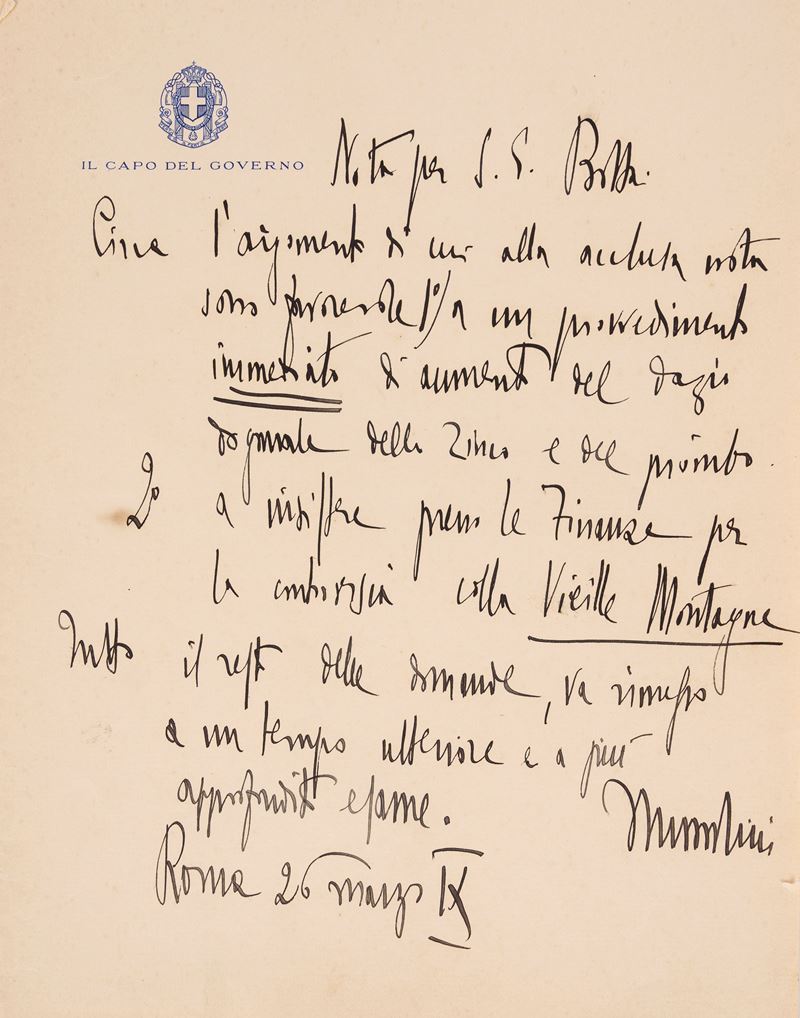 IL CAPO DEL GOVERNO
Nota per S. E. Bottai.
Circa l'argomento di cui alla acclusa nota
sono favorevole 1°) a un provvedimento
immediato di aumento del dazio
doganale dello zinco e del piombo.
2° a insistere presso le Finanze per
la controversia colla Vieille Montagne
Tutto il resto delle domande, va rimesso
a un tempo ulteriore e a più
approfondito esame.
Mussolini
Roma 26 marzo IX